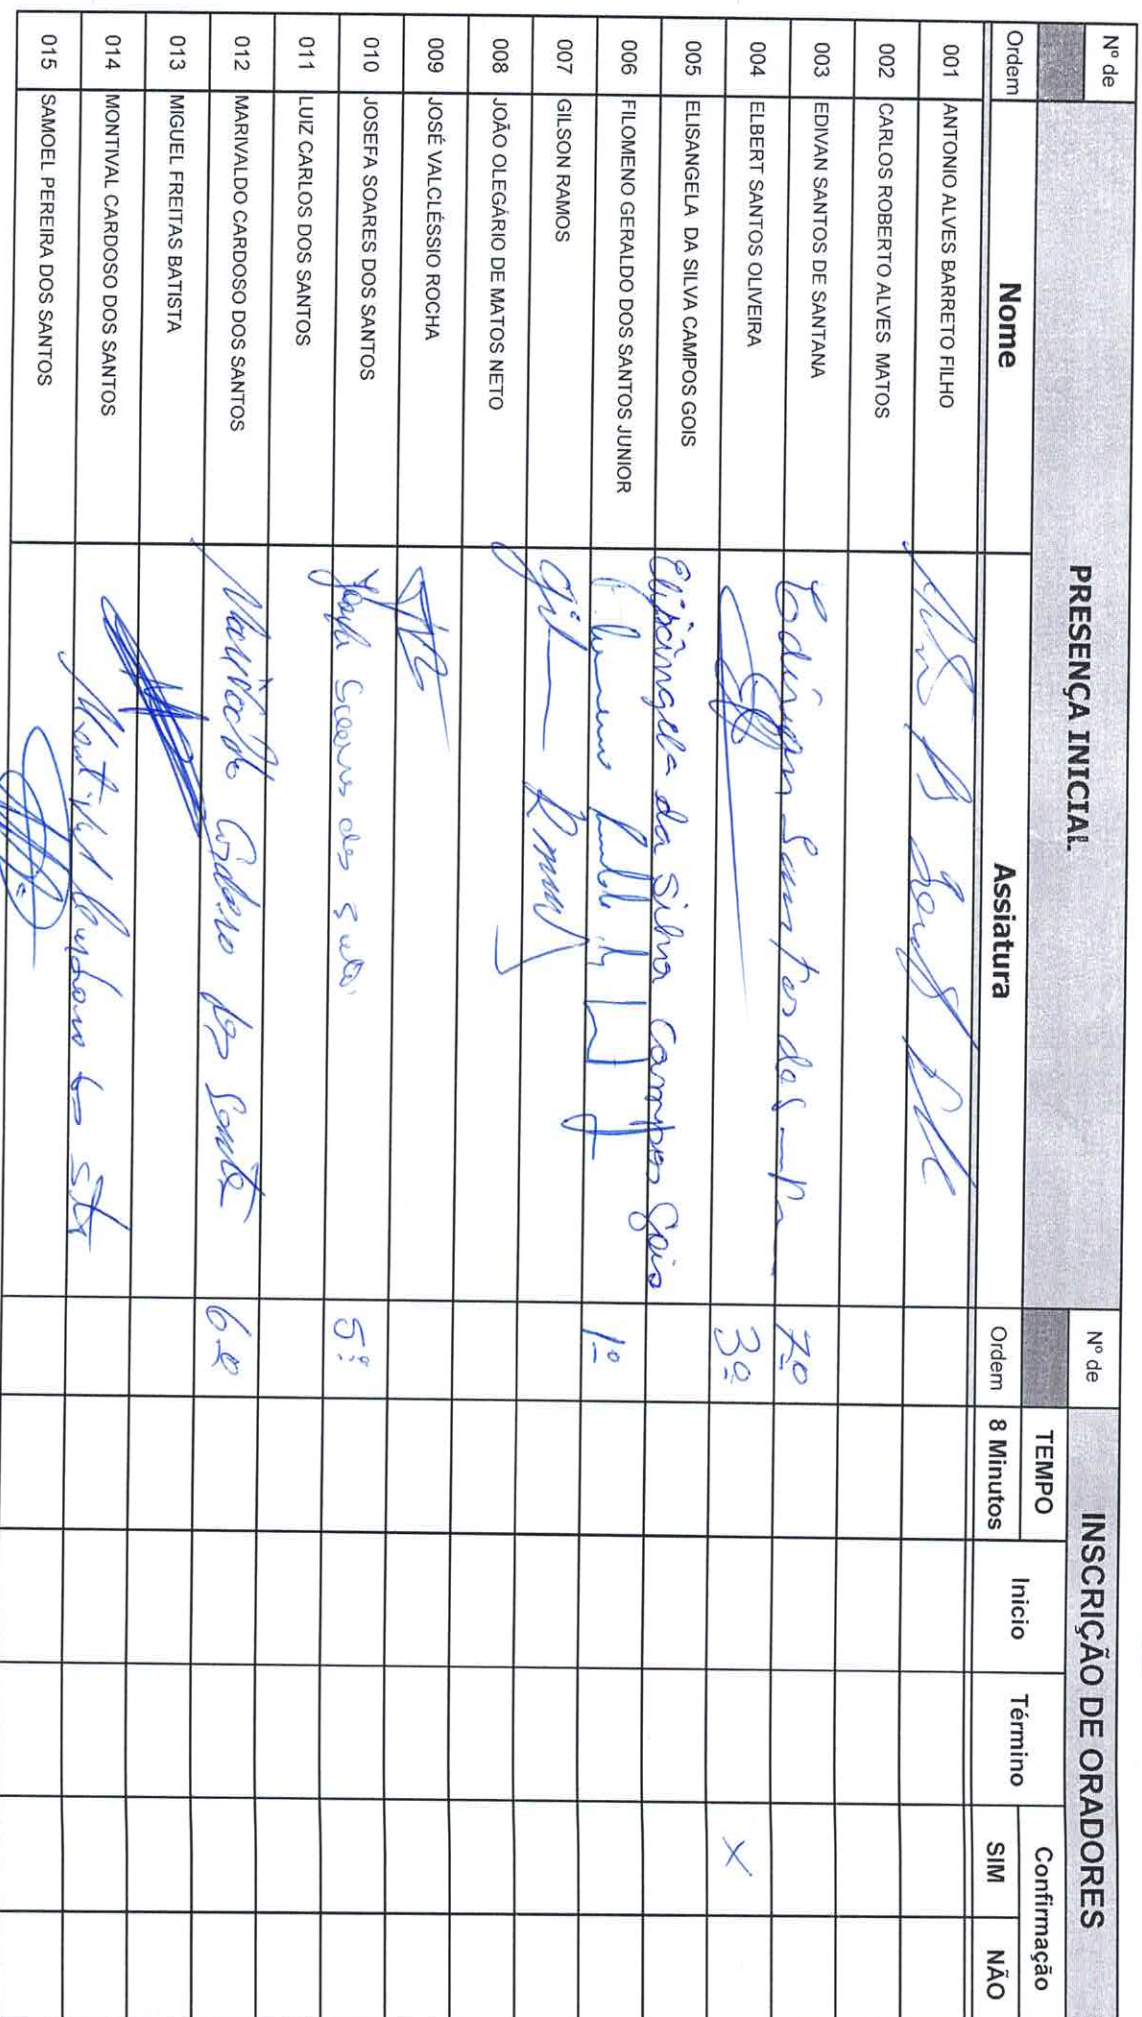 Nº de Ordem PRESENÇA INICIAL Nº de Ordem INSCRIÇÃO DE ORADORES
Nome Assiatura TEMPO 8 Minutos Inicio Término Confirmação SIM NÃO
001 ANTONIO ALVES BARRETO FILHO
002 CARLOS ROBERTO ALVES MATOS
003 EDIVAN SANTOS DE SANTANA Edivan Santos de 7º
004 ELBERT SANTOS OLIVEIRA 3º X
005 ELISANGELA DA SILVA CAMPOS GOIS Elisângela da Silva Campos Gois
006 FILOMENO GERALDO DOS SANTOS JUNIOR 1º
007 GILSON RAMOS
008 JOÃO OLEGÁRIO DE MATOS NETO
009 JOSÉ VALCLÉSSIO ROCHA
010 JOSEFA SOARES DOS SANTOS Josefa Soares dos Santos 5º
011 LUIZ CARLOS DOS SANTOS
012 MARIVALDO CARDOSO DOS SANTOS Marivaldo Cardoso dos Santos 6º
013 MIGUEL FREITAS BATISTA
014 MONTIVAL CARDOSO DOS SANTOS Montival Cardoso
015 SAMOEL PEREIRA DOS SANTOS